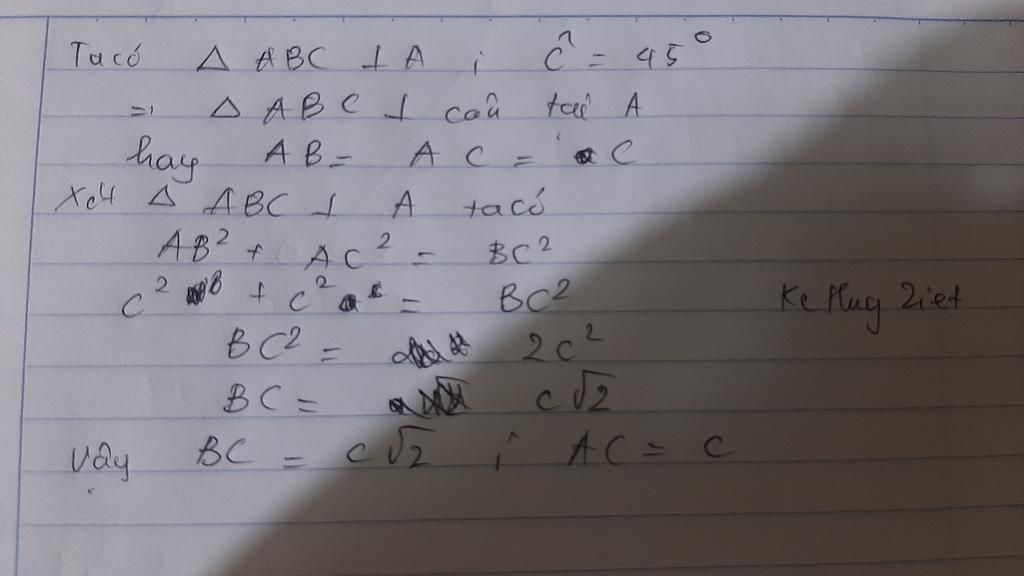 Ta có △ ABC ⊥ A ; Ĉ = 45°
=> △ ABC ⊥ cân tại A
hay AB = AC = C
Xét △ ABC ⊥ A ta có
AB² + AC² = BC²
C² + C² = BC²
BC² = 2C²
BC = C√2
Vậy BC = C√2 ; AC = C